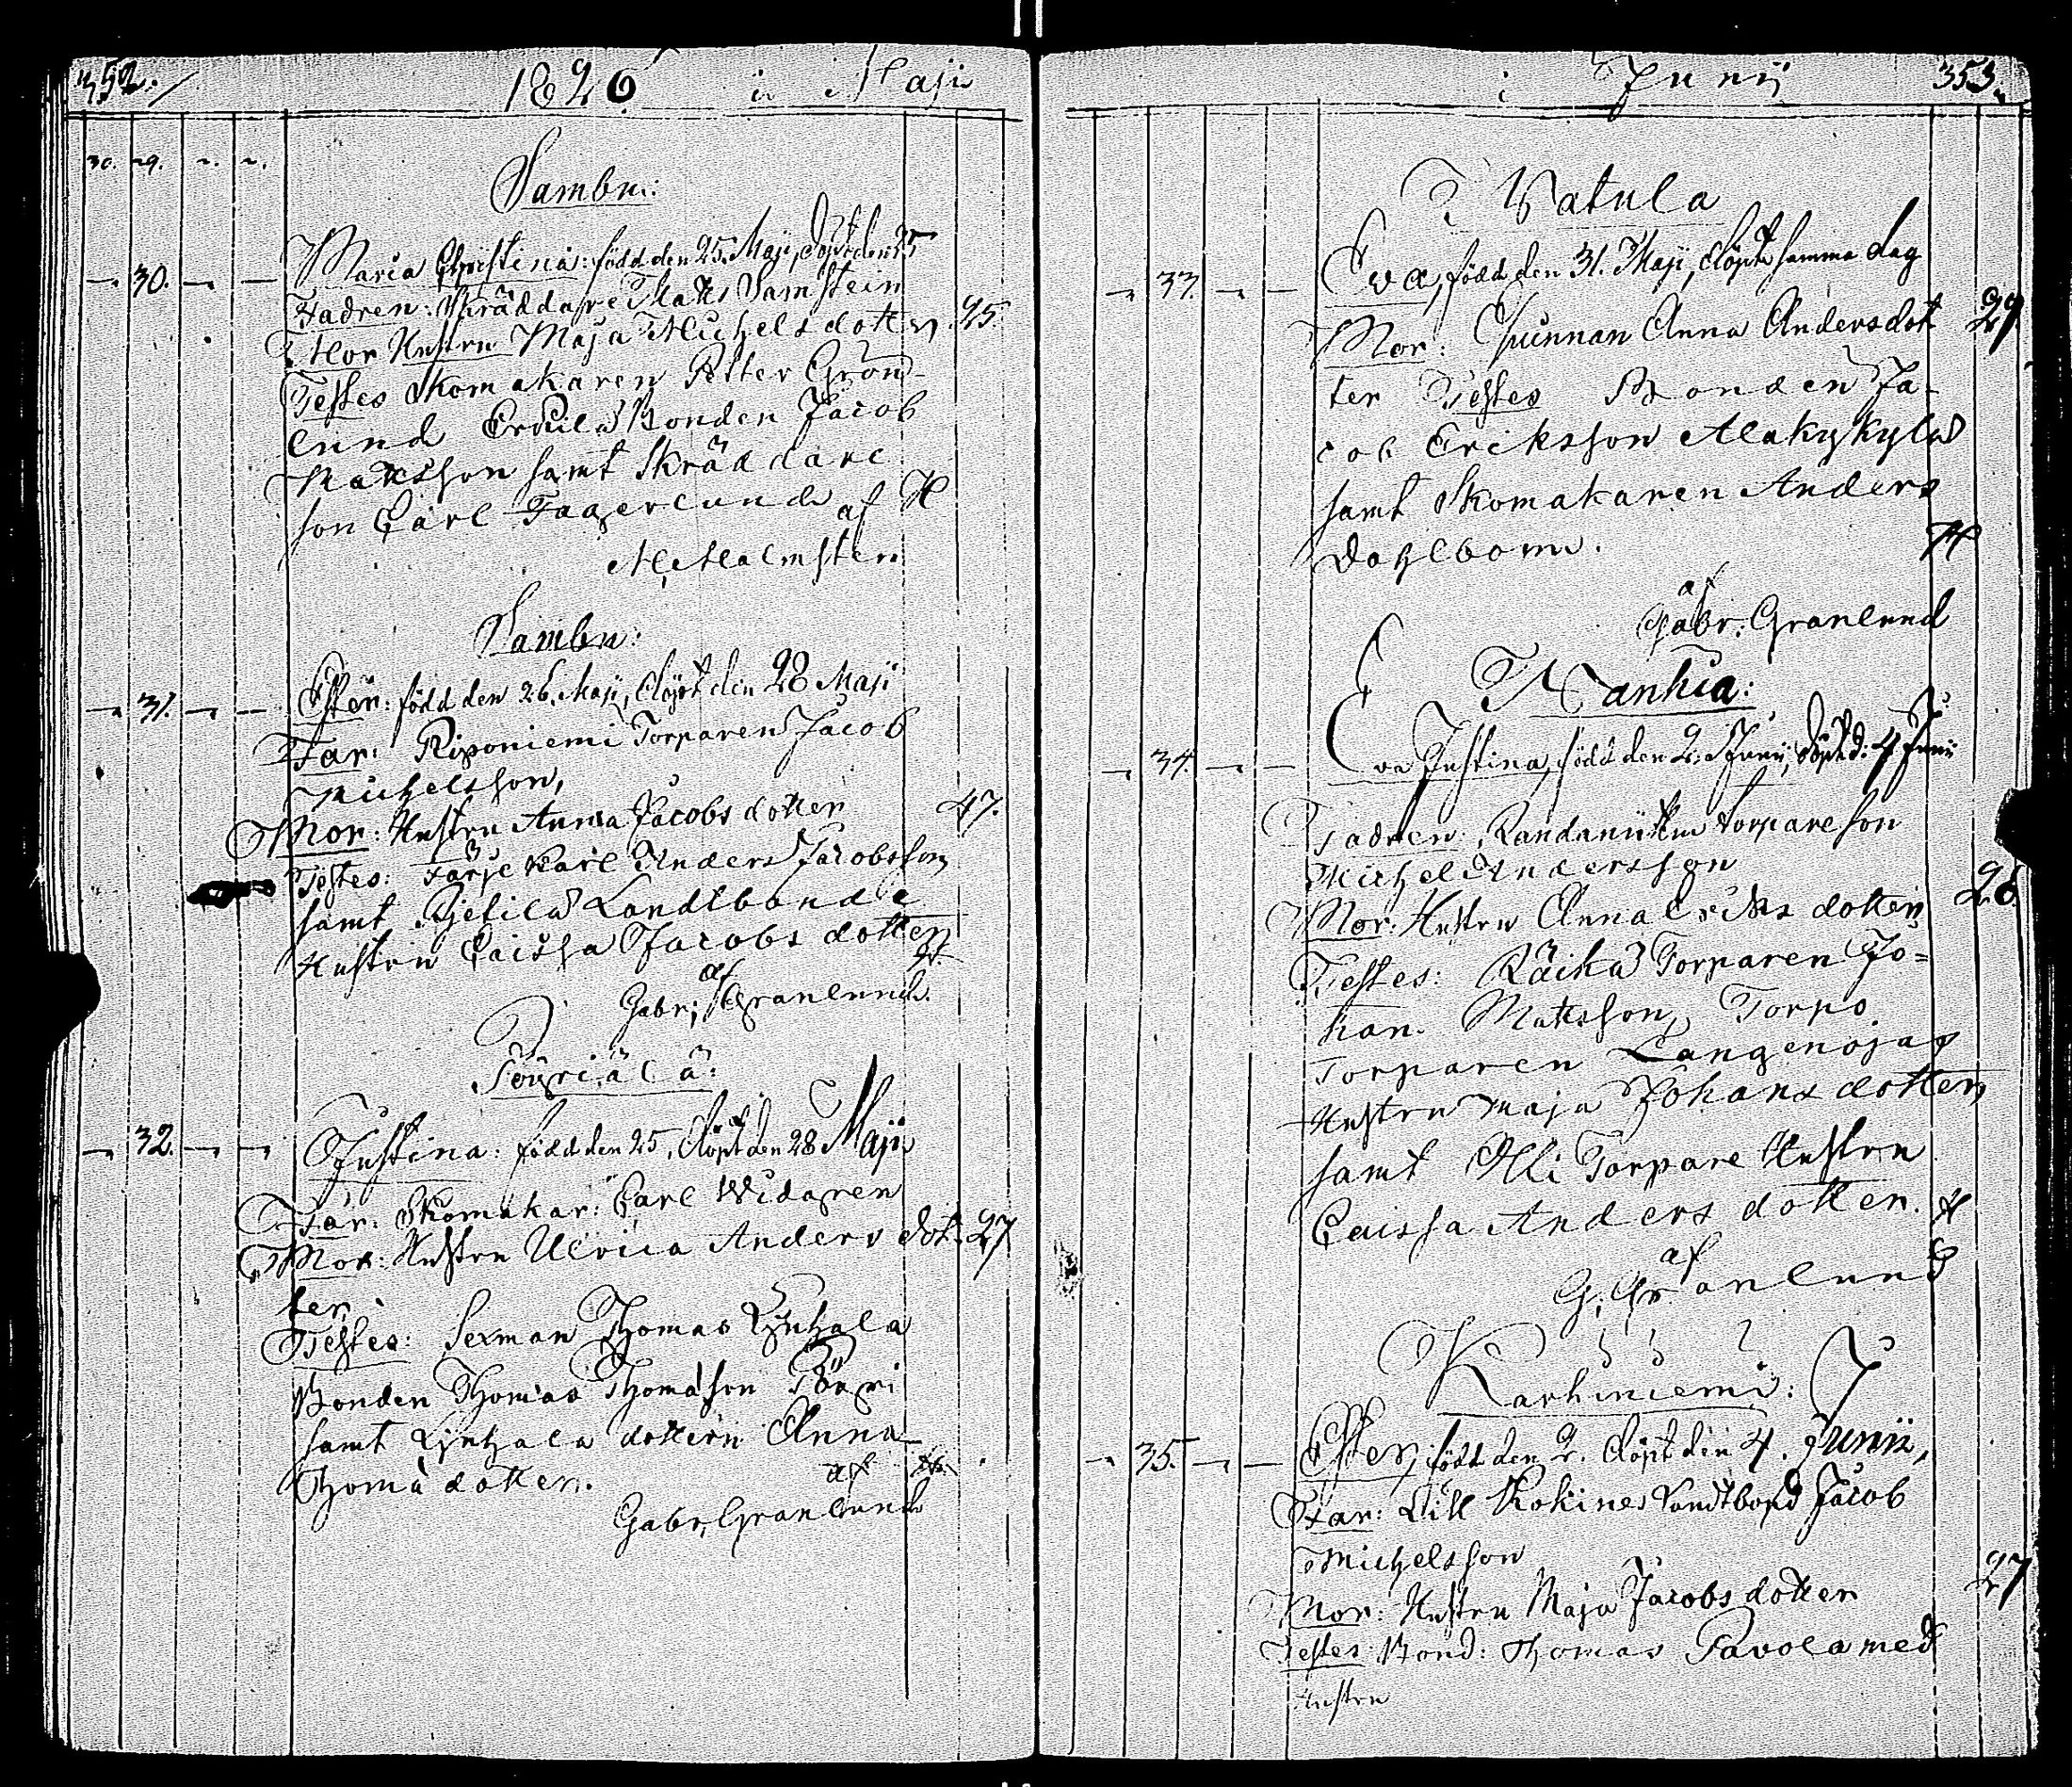 352.
1826 i Maji
30. 29. ~. ~.
Sambu:
30. Maria Christina: född den 25. Maji, döpt den 25
Fadren: Skräddare Matts Samstein
Mor Hustru Maja Michels dotter. 25.
Testes Skomakaren Petter Grön-
lund Bonden Jacob
Mattsson samt Skräddare
son Carl Fagerlund af H
M. Malmsten
Sambu:
31. Ester: född den 26. Maji, döpt den 28 Maji
Far: Riponiemi Torparen Jacob
Michelsson,
Mor: Hustru Anna Jacobs dotter 47.
Testes: Färje Karl Anders Jacobsson
samt Landtbonde
Hustru Caissa Jacobs dotter
af
Gabr; Granlund.
32. Justina: född den 25, döpt den 28 Maji
Far: Skomakar: Carl Widgren
Mor: Hustru Ulrica Anders dot- 27
ter
Testes: Sexman Thomas
Bonden Thomas Thomasson
samt dottern Anna
Thomæ dotter. af
Gabr, Granlund
i Junij 353.
I Watula
33. Eva, född den 31. Maji, döpt samma dag
Mor: Qvinnan Anna Andersdot 29
ter Testes Bonden Ja-
cob Eriksson Makykylä
samt Skomakaren Anders
Dahlbom. H
af
Gabr. Granlund
I Wanhia:
34. Eva Justina, född den 2. Junii, döpt d: 4 Junii
Fadren: Randaniittu torpareson
Michel Andersson
Mor: Hustru Anna Eriks dotter 26.
Testes: Räikä Torparen Jo=
han Mattsson, Torpo
Torparen Langenoja
Hustru Maja Johans dotter
samt Olli Torpare Hustru
Caissa Anders dotter. H
af
G. Granlund
Karhiniemi:
35. Ester, född den 2. döpt den 4. Junii,
Far: Lill Kokines Landtbond Jacob
Michelsson 27
Mor: Hustru Maja Jacobs dotter
Testes Bond: Thomas Pavola med
Hustru